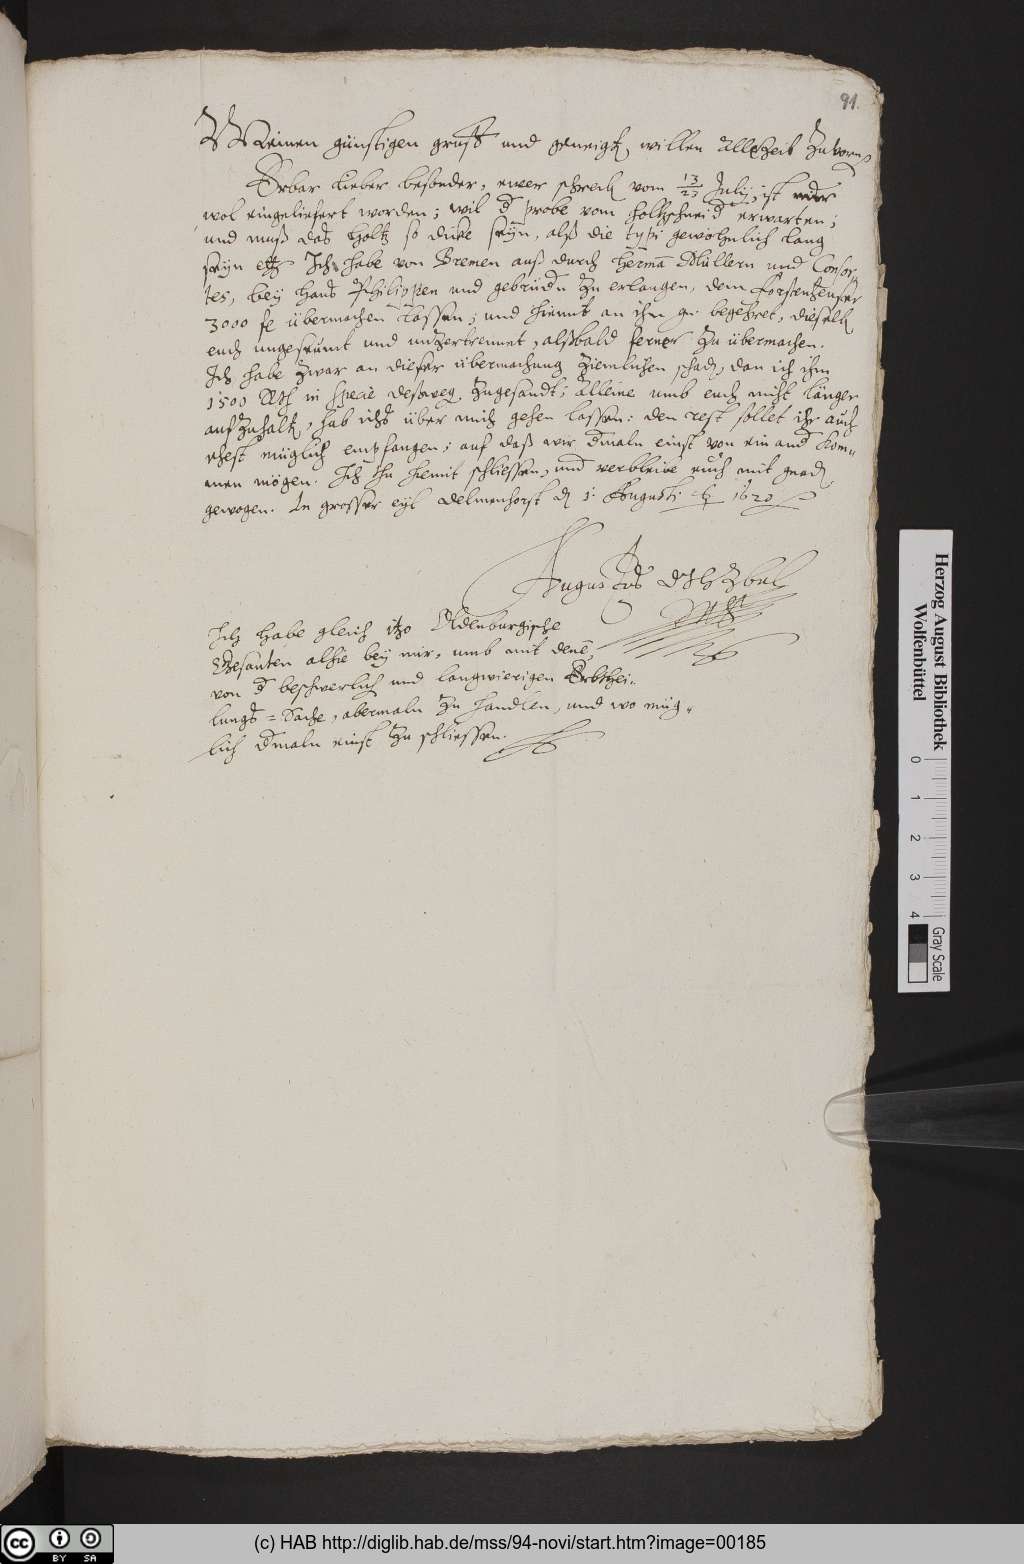 91.
Meinen günstigen gruß und geneigtē willen allezeit zuvorn
Erbar lieber besonder, ewer schreib vom 13/23 July, ist
wol eingeliefert worden; wil d probe vom holtzschneid erwarten;
und muß das holtz so dicke seyn, alß die typi gewohnlich lang
seyn etc Ich habe von Bremen auß durch Hermā Müllern und Consor,
tes, bey Hans Philippen und gebrüdn zu erlangen, dem Forstenheuser
3000 fl übermachen lassen; und hiemit an ihn gn. begehret, dieselb
euch ungeseumt und unzertrennet, alßbald ferner zu übermachen.
Ich habe zwar an dieser übermachung ziemlichen schadē, dan ich ihm
1500 Rth in specie deßweg zugesandt; alleine umb euch nicht länger
aufzuhaltē, hab ichs über mich gehen lassen: den rest sollet ihr auch
ehest müglich empfangen; auf daß wir dmaln einst von ein and kom,,
men mögen. Ich thu hiemit schliessen, und verbleibe euch mit gnadē
gewogen. In grosser eyl Delmenhorst d 1. Augusti 1620
Augustus
Ich habe gleich itzo Oldenburgische
Gesanten alhie bey mir, umb mit denē,
von d beschwerlich und langwierigen Erbthei,,
lungs = Sache, abermaln zu handlen, und wo müg,,
lich dmaln einst zu schliessen.
Herzog August Bibliothek
Wolfenbüttel
0 1 2 3 4
Gray Scale
cc BY SA
(c) HAB http://diglib.hab.de/mss/94-novi/start.htm?image=00185